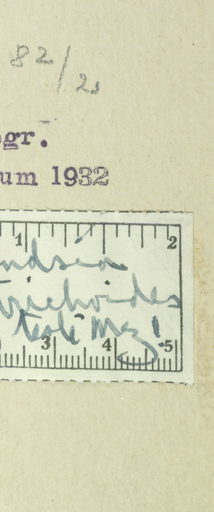 82/2.
gr.
um 1932
1 2
ndsia
trichoides
teste Mez!
3 4 5